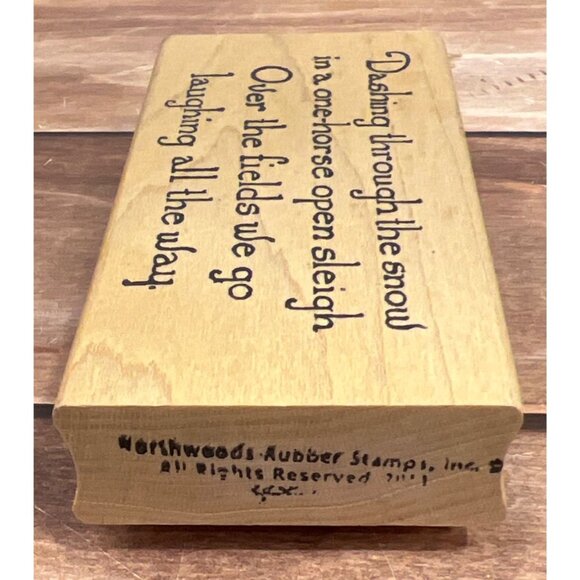 Dashing through the snow
in a one-horse open sleigh
Over the fields we go
laughing all the way.
Northwoods Rubber Stamps, Inc.
All Rights Reserved